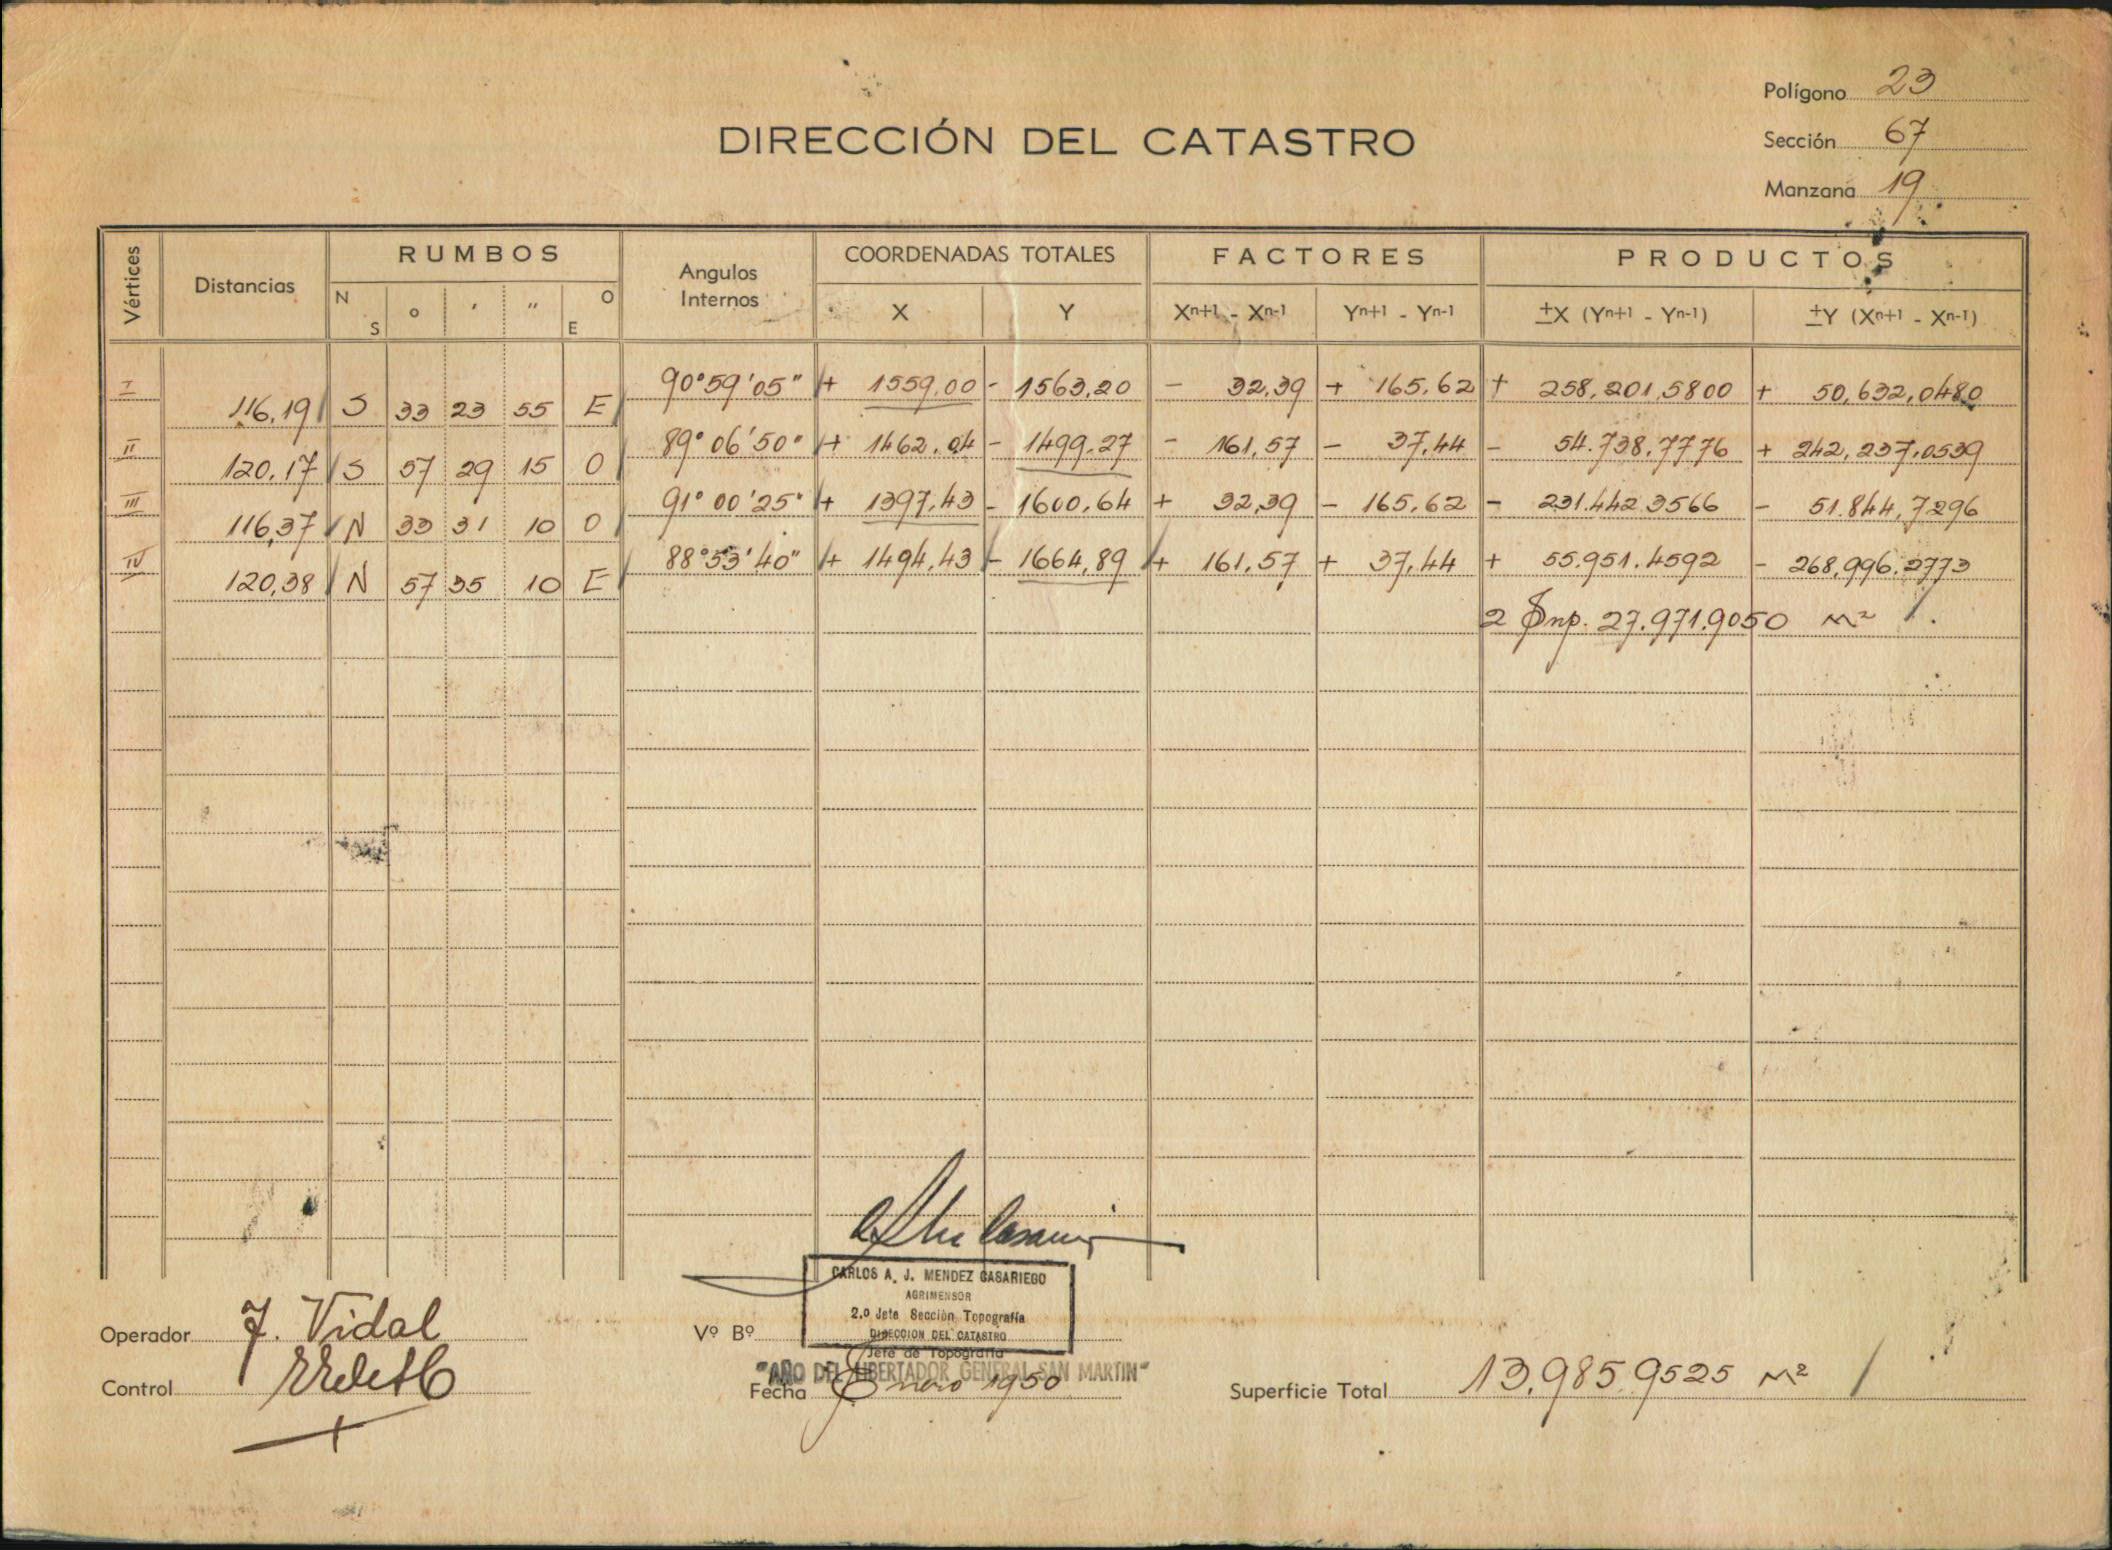 Polígono 23
DIRECCIÓN DEL CATASTRO
Sección 67
Manzana 19
Vértices Distancias RUMBOS Angulos Internos COORDENADAS TOTALES FACTORES PRODUCTOS
N S o ' " O E X Y Xn+1 - Xn-1 Yn+1 - Yn-1 ±X (Yn+1 - Yn-1) ±Y (Xn+1 - Xn-1)
I 90°59'05" + 1559,00 - 1563,20 - 32,39 + 165,62 + 258,201,5800 + 50,632,0480
116,19 S 33 23 55 E
II 89°06'50" + 1462,04 - 1499,27 - 161,57 - 37,44 - 54.738,7776 + 242,237,0539
120,17 S 57 29 15 O
III 91°00'25" + 1397,43 - 1600,64 + 32,39 - 165,62 - 231.442.3566 - 51.844,7296
116,37 N 33 31 10 O
IV 88°53'40" + 1494,43 - 1664,89 + 161,57 + 37,44 + 55.951.4592 - 268,996.2773
120,38 N 57 35 10 E
2 Sup. 27.971.9050 M²
CARLOS A. J. MENDEZ CASARIEGO
AGRIMENSOR
2.o Jefe Sección Topografía
DIRECCION DEL CATASTRO
Operador J. Vidal
Vº Bº
Jefe de Topografía
"AÑO DEL LIBERTADOR GENERAL SAN MARTIN"
Control
Fecha Enero 1950
Superficie Total 13,985,9525 M²